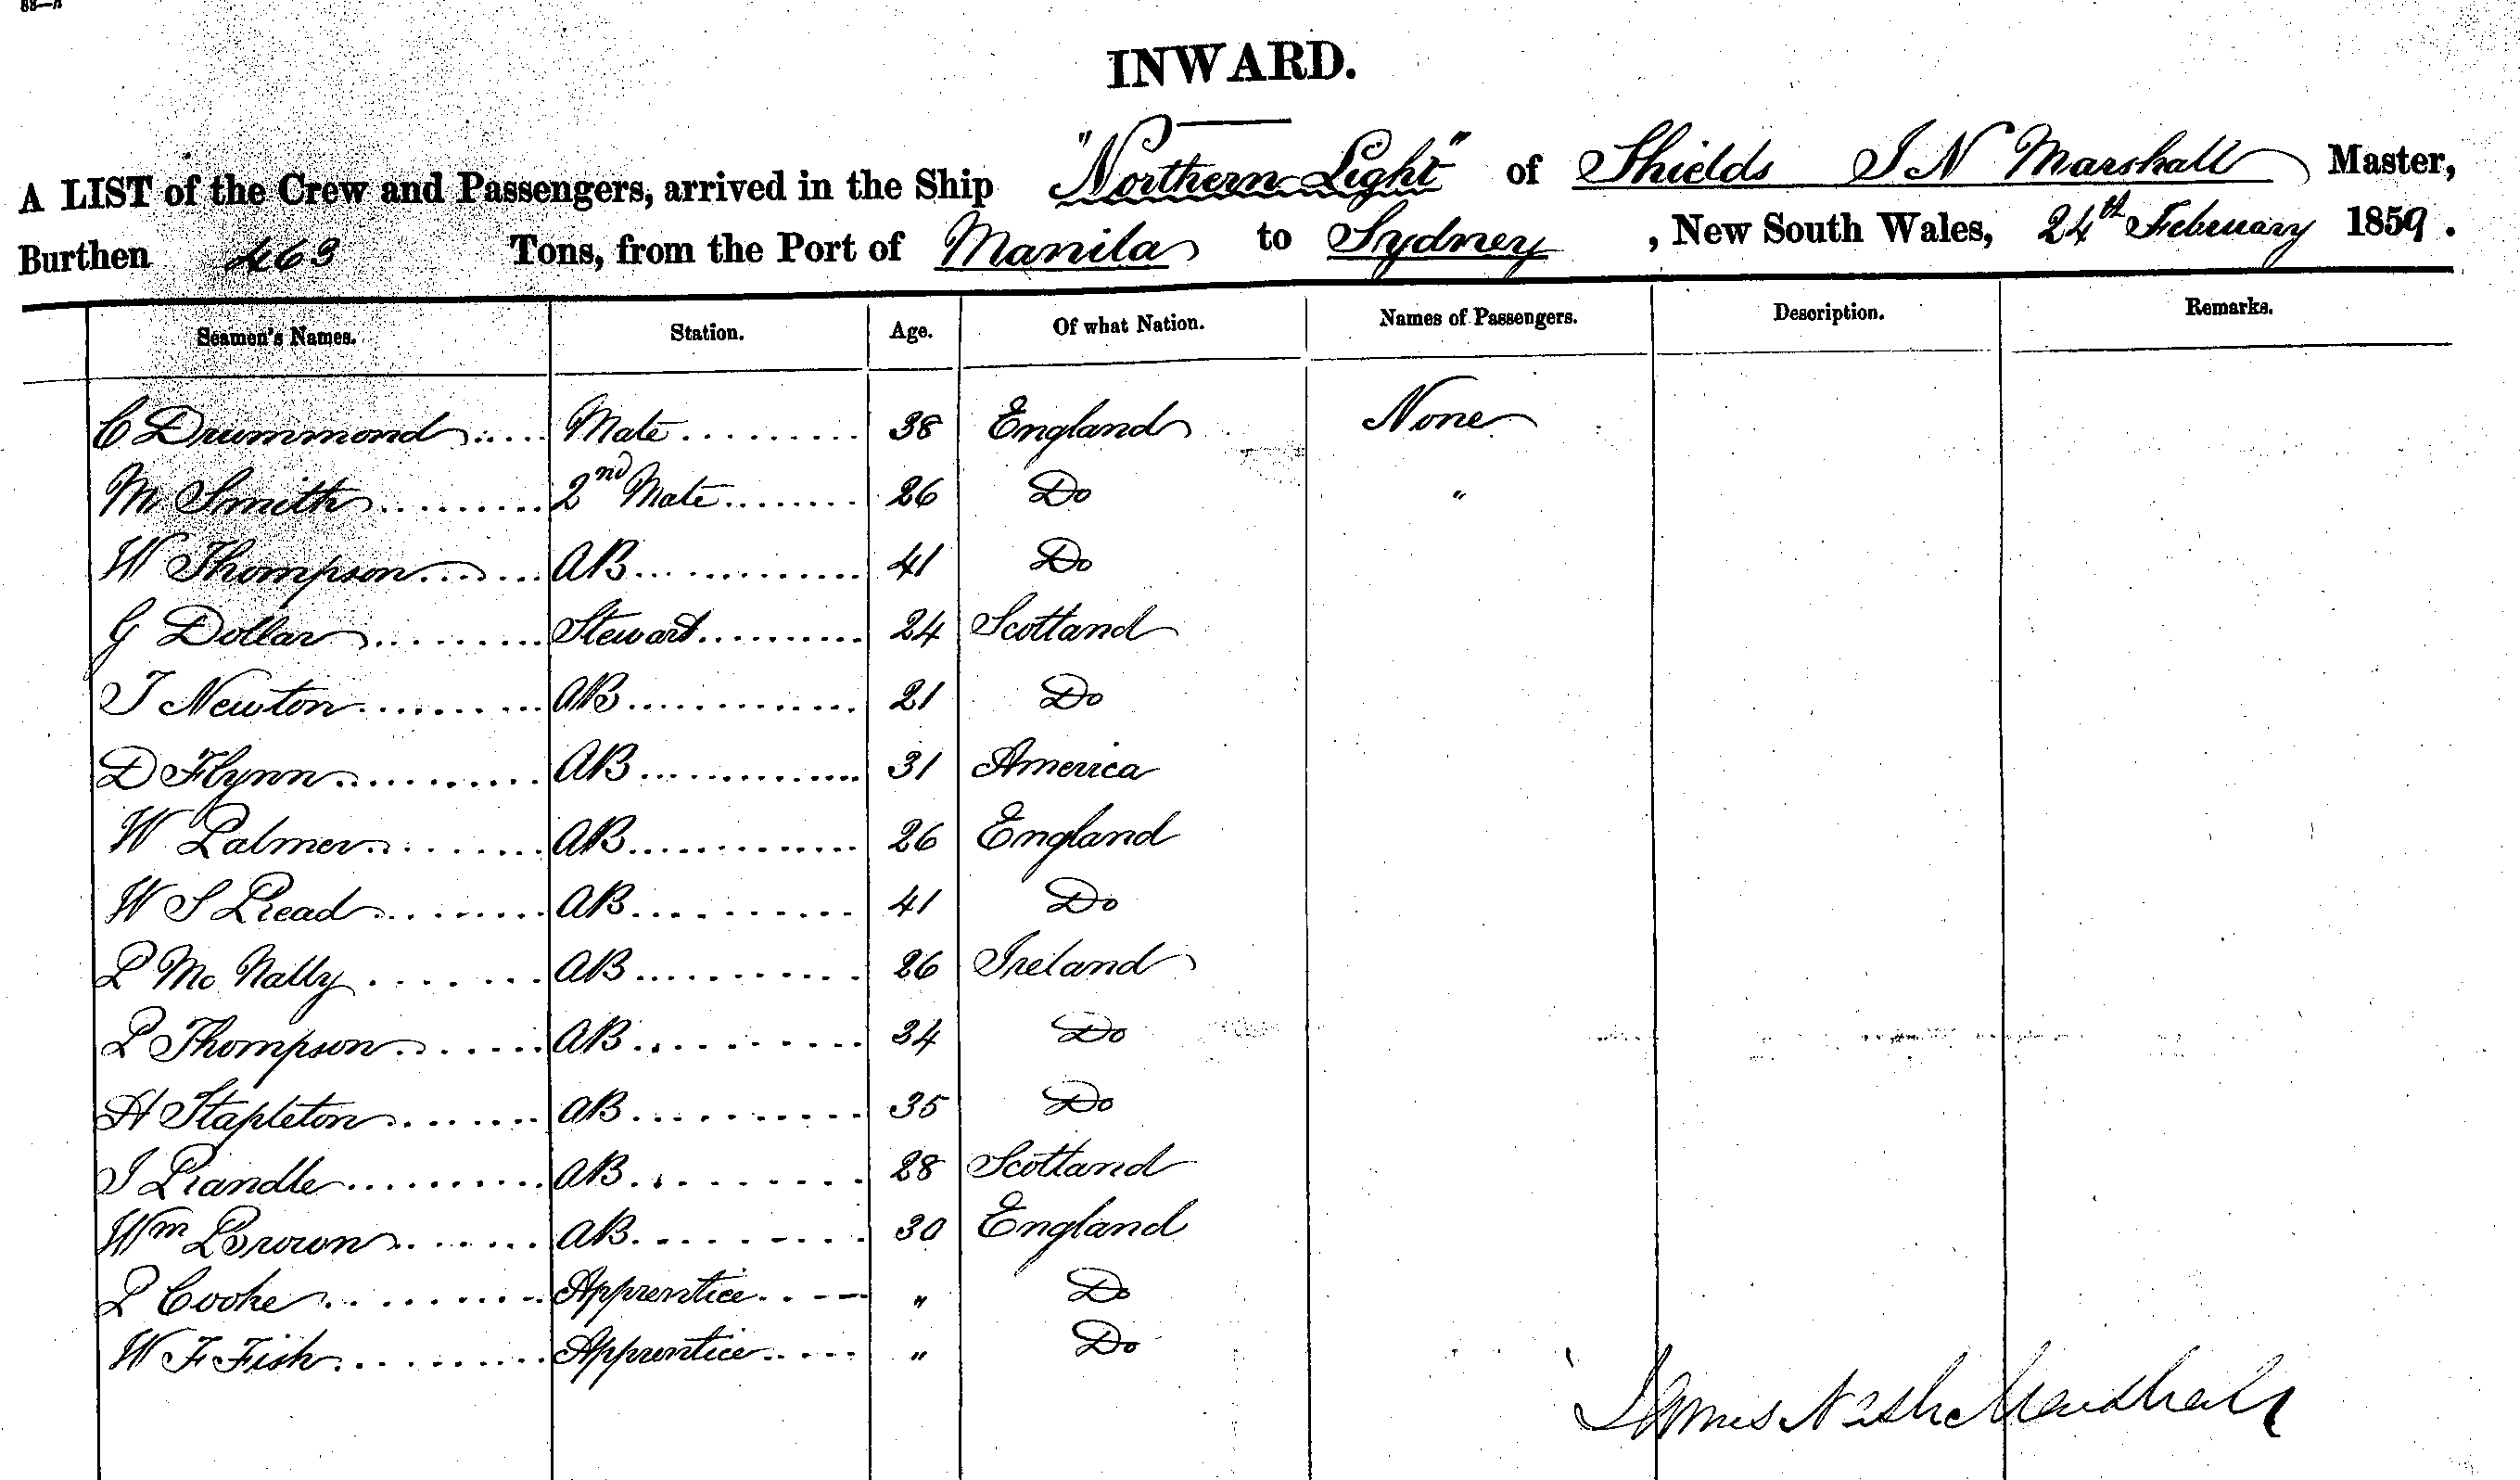 88—A
INWARD.
A LIST of the Crew and Passengers, arrived in the Ship "Northern Light" of Shields J N Marshall Master,
Burthen 463 Tons, from the Port of Manila to Sydney, New South Wales, 24th February 1859.
Seamen's Names. Station. Age. Of what Nation. Names of Passengers. Description. Remarks.
C Drummond..... Mate......... 38 England None
M Smith......... 2nd Mate....... 26 Do "
W Thompson...... AB............. 41 Do
G Dollar......... Stewart.......... 24 Scotland
T Newton......... AB............. 21 Do
D Flynn.......... AB............. 31 America
W Palmer........ AB............. 26 England
W S Read........ AB.......... 41 Do
P Mc Nally....... AB........... 26 Ireland
P Thompson...... AB.......... 34 Do
H Stapleton....... AB.......... 35 Do
J Randle.......... AB......... 28 Scotland
Wm Brown....... AB......... 30 England
P Cooke......... Apprentice.... " Do
W F Fish......... Apprentice..... " Do
James Marshall